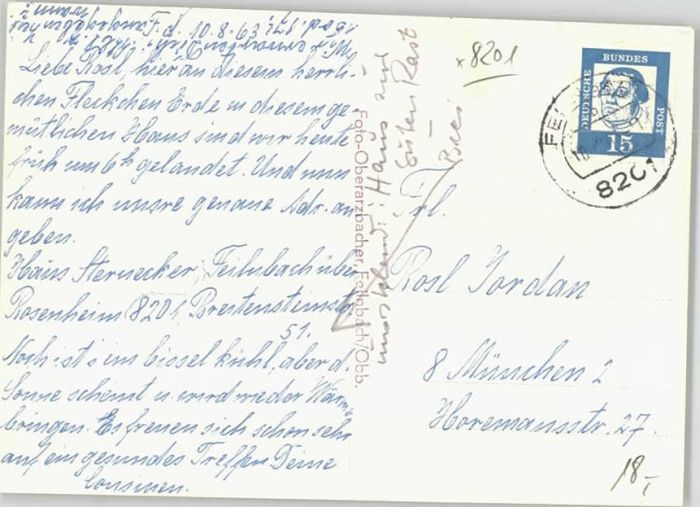 F. d. 10.8.63.
Liebe Rosl, hier an diesem herrli-
chen Fleckchen Erde u. diesem ge-
mütlichen Haus sind wir heute
früh um 6h gelandet. Und nun
kann ich unsre genaue Adr. an
geben.
Haus Sternecker, Feilnbach über
Rosenheim 8201, Breitensteinstr.
51.
Noch ist's ein bissel kühl, aber d.
Sonne scheint u. wird wieder Wärme
bringen. Es freuen sich schon sehr
auf ein gesundes Treffen Deine
Cousinen.
Foto-Oberarzbacher, Feilnbach/Obb.
umstehend: Haus zur
Guten Rast
x 8201
DEUTSCHE
BUNDES
POST
15
8201
Frl.
Rosl Jordan
8 München 2
Horemansstr. 27.
18,-